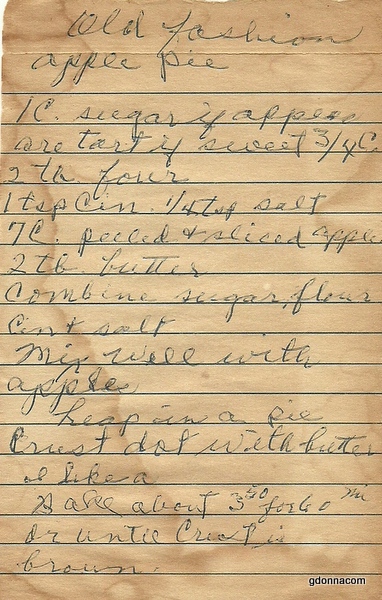 Old fashion
apple pie
1C. sugar if apples
are tart if sweet 3/4 C.
2 tb flour
1 tsp Cin. 1/4 tsp salt
7C. peeled & sliced apple
2 tb butter
Combine sugar, flour
Cin & salt
Mix well with
apples
heap in a pie
Crust dot with butter
Bake about 350 for 60 mi
or until Crust is
brown.
gdonnacom